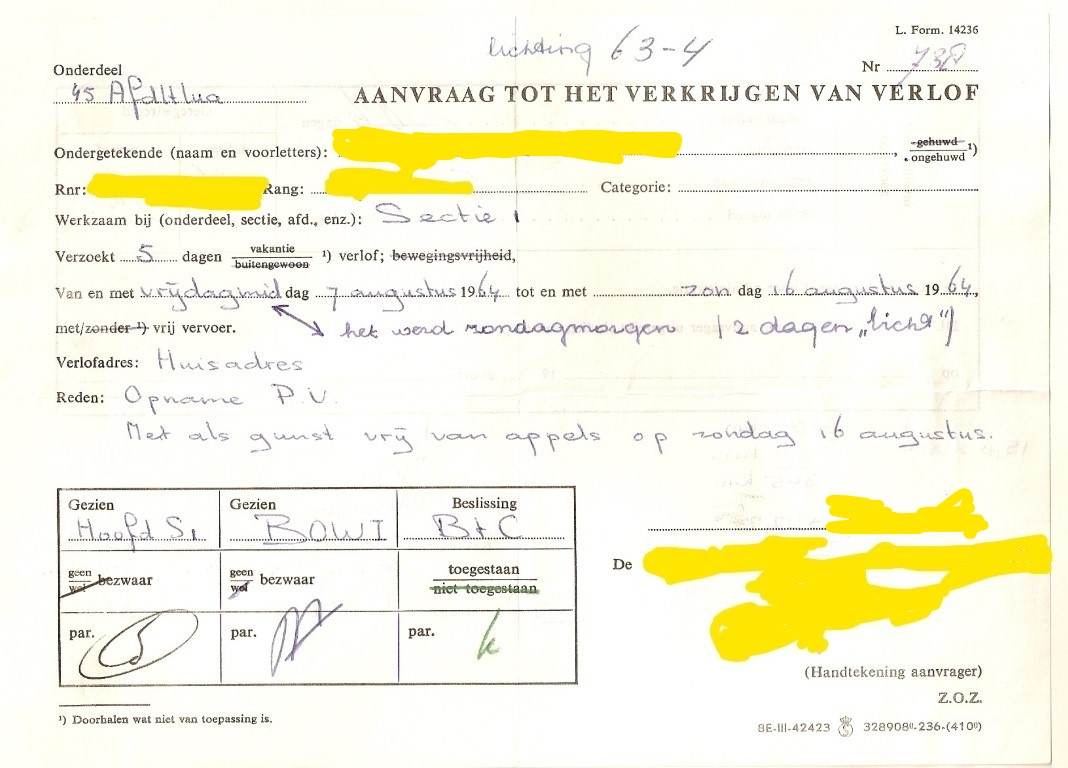 L. Form. 14236
lichting 63-4
Onderdeel
Nr 738
45 Afdltlua
AANVRAAG TOT HET VERKRIJGEN VAN VERLOF
Ondergetekende (naam en voorletters): , gehuwd ongehuwd ¹)
Rnr: Rang: Categorie:
Werkzaam bij (onderdeel, sectie, afd., enz.): Sectie 1
Verzoekt 5 dagen vakantie buitengewoon ¹) verlof; bewegingsvrijheid,
Van en met vrijdagmid dag 7 augustus 1964 tot en met zon dag 16 augustus 1964,
met/zonder ¹) vrij vervoer. het werd zondagmorgen (2 dagen „licht")
Verlofadres: Huisadres
Reden: Opname P.U.
Met als gunst vrij van appels op zondag 16 augustus.
Gezien Gezien Beslissing
Hoofd S1 BOWI BtC
geen wel bezwaar geen wel bezwaar toegestaan niet toegestaan
De
par. par. par.
(Handtekening aanvrager)
Z.O.Z.
¹) Doorhalen wat niet van toepassing is.
8E-III-42423 328908⁰-236-(410⁰)